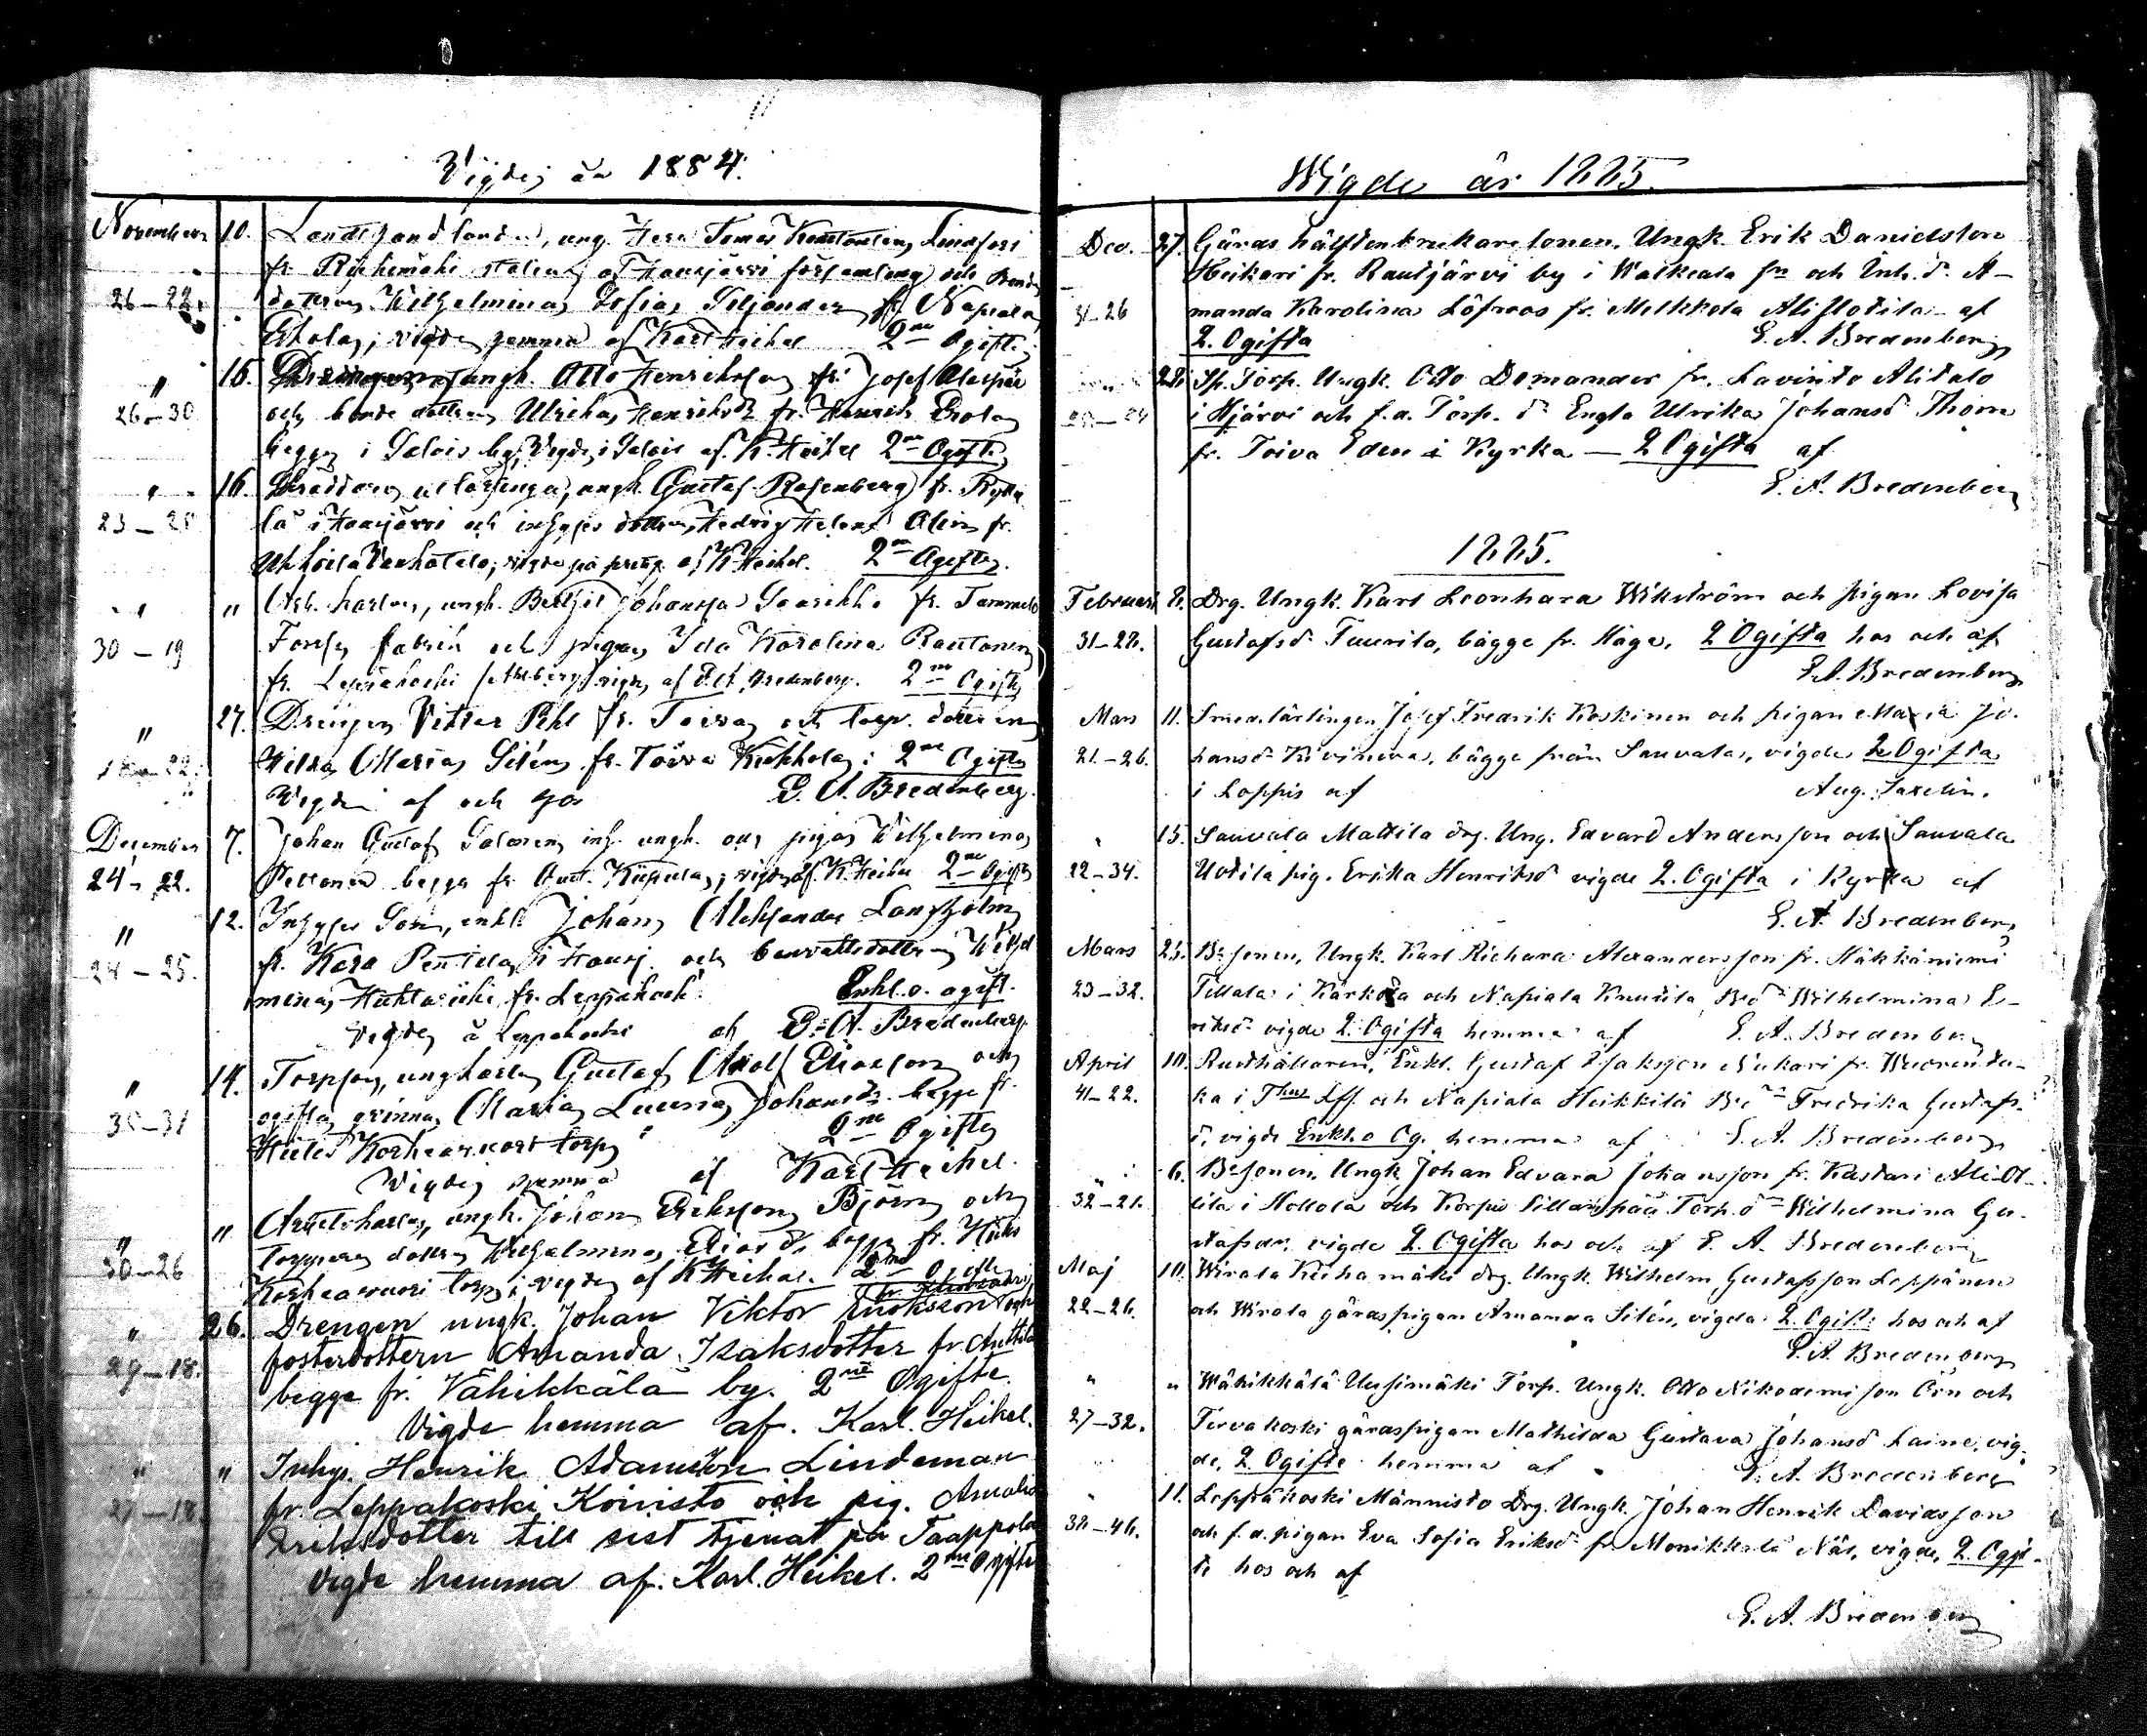 Vigde år 1884.
November 10. Landthandlanden, ung. Herr Tomas Konstantin Lindfors
fr. Riihimäki station af Hausjärvi församling och Bonde
26–22. dottren Wilhelmina Sofia Siljander fr. Napiala
Eskola; vigde hemma af Karl Heikel 2ne Ogifte
" 16. Drengen, ungk. Otto Henriksson fr. Josef
26–30 och bonde dottren Ulrika Henriksdr fr. Henrik Erola
begge i Salois by, Vigde i Salois af K. Heikel 2ne Ogifte
" 16. Skräddare ungk. Gustaf Rosenberg fr.
23– i Hausjärvi och inhyses dottren Hedvig Helena Alin fr.
vigde på af K Heikel. 2ne Ogifte.
" " Arb. karlen, ungk. Johansson fr. Tammela
30–19 Forssa fabrik och pigan Ida Karolina Rantanen
fr. Leppäkoski vigde af E. A. Bredenberg. 2ne Ogifte
" 27. Drengen Viktor Pihl fr. Toivo och torp. dottren
Hilda Maria Silén fr. Toivo 2ne Ogifte
Vigde af och hos E. A. Bredenberg.
December 7. Johan Gustaf Salonen inh. ungk. och pigan Wilhelmina
24–22. Peltonen begge fr. vigde af K. Heikel 2ne Ogifte
" 12. Inhyses Son, enkl. Johan Aleksander Långholm
24–25. fr. Kara Penttila i Hausj. och Wilhel
mina fr. Leppäkoski. Enkl. o. ogift.
Vigde å Leppäkoski af E. A. Bredenberg
" 14. Torpson, ungkarlen Gustaf Adolf Eliasson och
ogifta qvinnan Maria Lovisa Johansdr. begge fr.
torp 2ne Ogifte
Vigde hemma af Karl Heikel.
" " ungk. Johan Eriksson Björn och
30–26 Torpare dottren Wilhelmina Eliasdr. begge fr.
torp; vigde af K Heikel. 2ne Ogifte
" 26. Drengen ungk. Johan Viktor Enoksson och
29–18. fosterdottern Amanda Isaksdotter fr. Anttila
begge fr. Vähikkälä by. 2ne Ogifte.
Vigde hemma af. Karl. Heikel.
" " Inhys. Henrik Adamsson Lindeman
27–18. fr. Leppäkoski Koivisto och pig. Amalia
Eriksdotter till sist tjenat på Taappola
Vigde hemma af. Karl. Heikel. 2ne Ogifte
Wigde år 1885.
Dec. 27. Gårds hälftenbrukaresonen, Ungk. Erik Danielsson
Heikari fr. Rautjärvi by i Walkeala fn och Inh. dr A-
31–26 manda Karolina Löfroos fr. Melkkola Alistotila af
2. Ogifta E. A. Bredenberg
28. Sp. Torp. Ungk. Otto Demander fr. Lavinto Alitalo
i Hjärvi och f.d. Torp. dr Engla Ulrika Johansd. Thorn
fr. Toiva Eden i Kyrka — 2 Ogifta af
E. A. Bredenberg
1885.
Februari 8. Drg. Ungk. Karl Leonhard Wikström och pigan Lovisa
31–28. Gustafsd. Taurila, bägge fr. Håge, 2 Ogifta hos och af
E. A. Bredenberg
Mars 11. Smedslärlingen Josef Fredrik Koskinen och pigan Maria Jo-
21–26. hansd. Kivineva, bägge från Sauvala, vigde 2 Ogifta
i Loppis af Aug. Taxelin.
" 15. Sauvala Mattila drg. Ung. Edvard Andersson och Sauvala
22–34. Uotila pig. Erika Henriksd. vigde 2. Ogifta i Kyrka af
E. A. Bredenberg
Mars 25. Bd. sonen, Ungk. Karl Richard Alexandersson fr. Häkkäniemi
23–32. Tillala i Kärkölä och Napiala Knutila Bd. dr Wilhelmina E-
riksd. vigde 2. Ogifta hemma af E. A. Bredenberg
April 10. Rusthållaren, Enkl. Gustaf Isaksson Niukari fr. Wuorenta-
41–22. ka i Thus Lff. och Napiala Heikkilä Bd. dr Fredrika Gustafs-
d. vigde Enkl. o Og. hemma af E. A. Bredenberg
" 6. Bd. sonen, Ungk. Johan Edvard Johansson fr. Kastari Ali-Ot-
32–21. tila i Hollola och Korpis Sillanpää Torp. dr Wilhelmina Gu-
stafsdr. vigde 2. Ogifta hos och af E. A. Bredenberg
Maj 10. Wirala Keihamäki drg. Ungk. Wilhelm Gustafsson Leppänen
22–26. och Wirala gårdspigan Amanda Silén, vigda 2. Ogifte hos och af
E. A. Bredenberg
" " Wähikkälä Uusimäki Torp. Ungk. Otto Nikodemisson Örn och
27–32. Tervakoski gårdspigan Mathilda Gustava Johansd Laine, vig-
de, 2. Ogifte hemma af E. A. Bredenberg
" 11. Leppäkoski Männistö Drg. Ungk. Johan Henrik Davidsson
38–46. och f.d. pigan Eva Sofia Eriksd. fr. Monikkala Näs, vigde, 2. Ogif-
te hos och af
E. A. Bredenberg